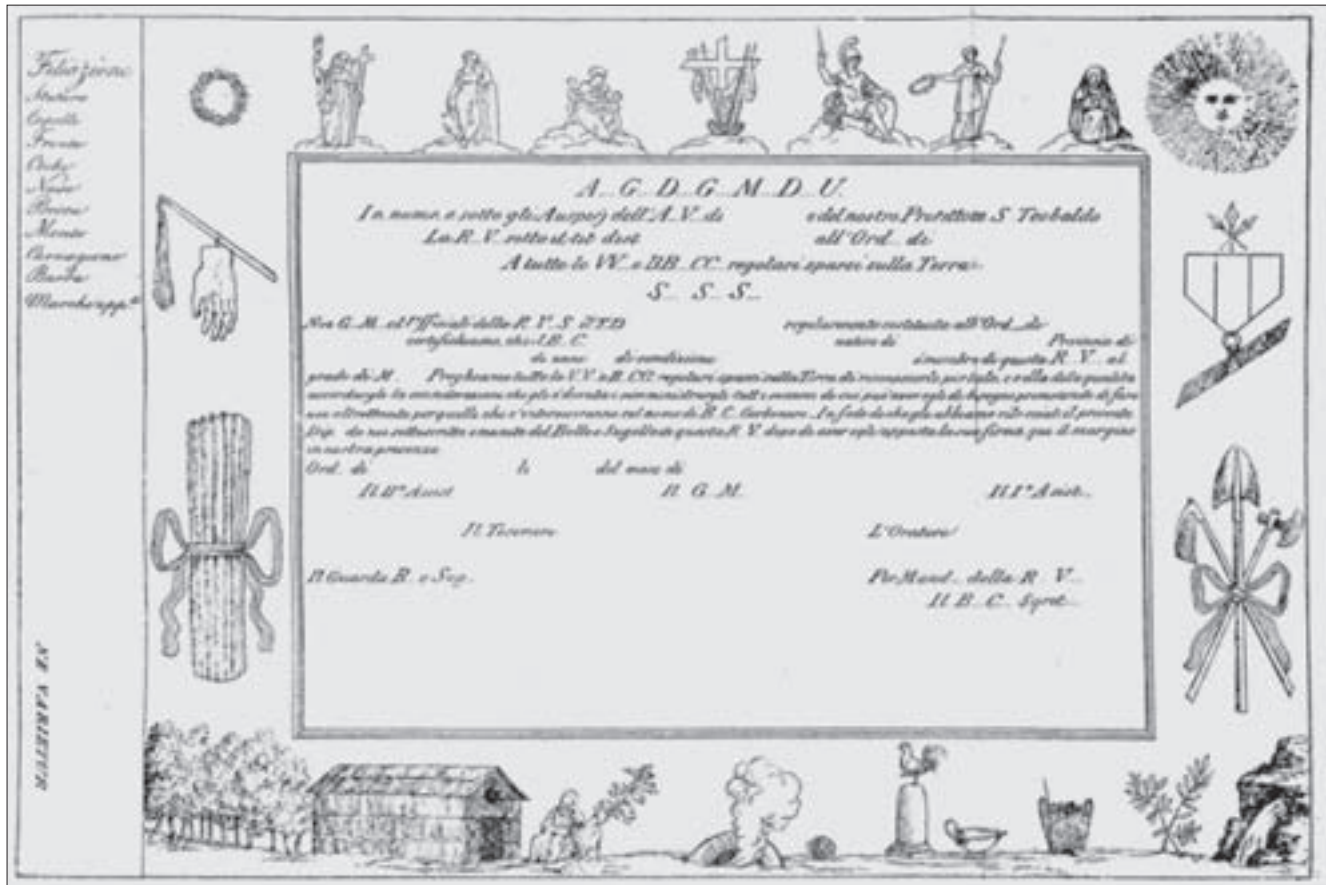 Filiazione
Statura
Capelli
Fronte
Occhj
Naso
Bocca
Mento
Carnagione
Barba
NE VARIETUR
A... G... D... G... M... D... U...
In nome, e sotto gli Auspicj dell'A. V. di e del nostro Protettore S. Teobaldo
La R... V... sotto il tit. dist. all'Ord... di
A tutte le VV... e BB... CC... regolari sparsi sulla Terra
S... S... S...
Noi G... M... ed Officiali della R. V. S. regolarmente costituita all'Ord... di
certifichiamo, che il B... C... nativo di Provincia di
di anni di condizione è membro di questa R... V... al
grado di M... Preghiamo tutte le V.V. e B. CC. regolari sparsi sulla Terra di riconoscerlo per tale, e nella detta qualità
accordargli la considerazione che gli è dovuta e somministrargli tutti i soccorsi de cui può aver egli di bisogno promettendo di fare
che s'interverranno col nome di B. C. Carbonaro. In fede di che gli abbiamo rilasciato il presente
Dip. da noi sottoscritto e munito del Bollo e Sugello di questa R... V... dopo di aver egli apposta la sua firma qui il margine
in nostra presenza
Ord... di li del mese di
Il II° Assist Il G... M... Il I° Assist...
Il Tesoriere L'Oratore
Il Guarda B... e Sug... Per Mand... della R... V...
Il B... C... Segret...